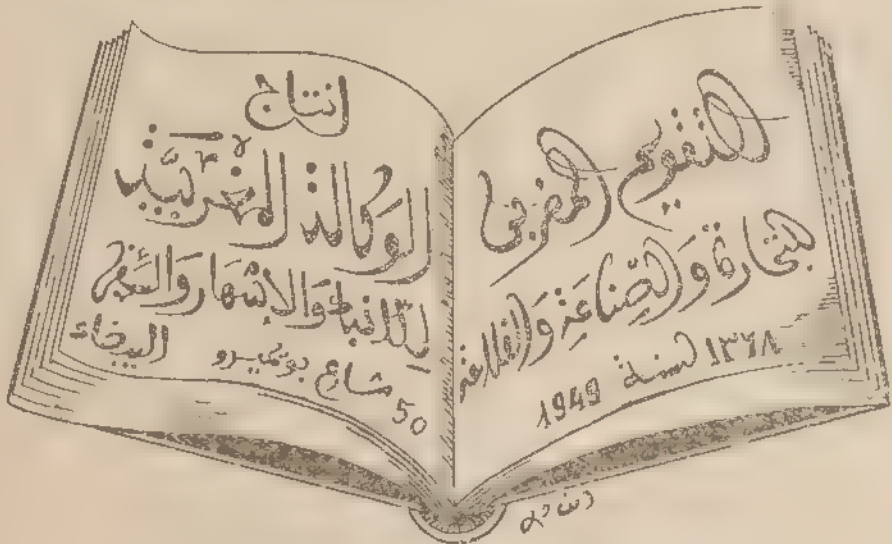 التقويم المغربي
للتجارة والصناعة والفلاحة
لسنة ١٣٦٨ 1949
انتاج
الوكالة المغربية
للانباء والاشهار والسفر
50 شارع بوكيرو البيضاء